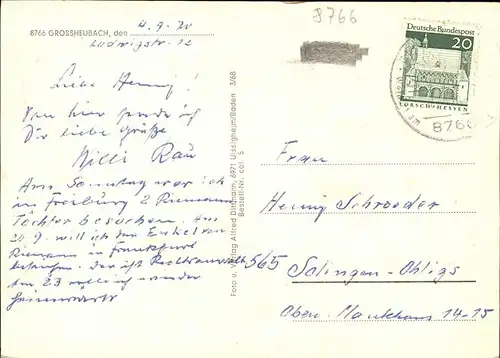 8766
8766 GROSSHEUBACH, den 4.9.70
Ludwigstr. 12
Liebe Henny!
Von hier sende ich
Dir liebe Grüße
Willi Rau
Am Sonntag war ich
in Freiburg 2 Riemann
Töchter besuchen. Am
20.9. will ich den Enkel von
Riemann in Frankfurt
Der ist Rechtsanwalt
am 23
Foto u. Verlag Alfred Dittmann, 6971 Uissigheim/Baden 3/68
Bestell-Nr. col. 5
Deutsche Bundespost
20
LORSCH/HESSEN
8766
Frau
Henny Schroeder
565 Solingen-Ohligs
Obere Mankhaus 14-15